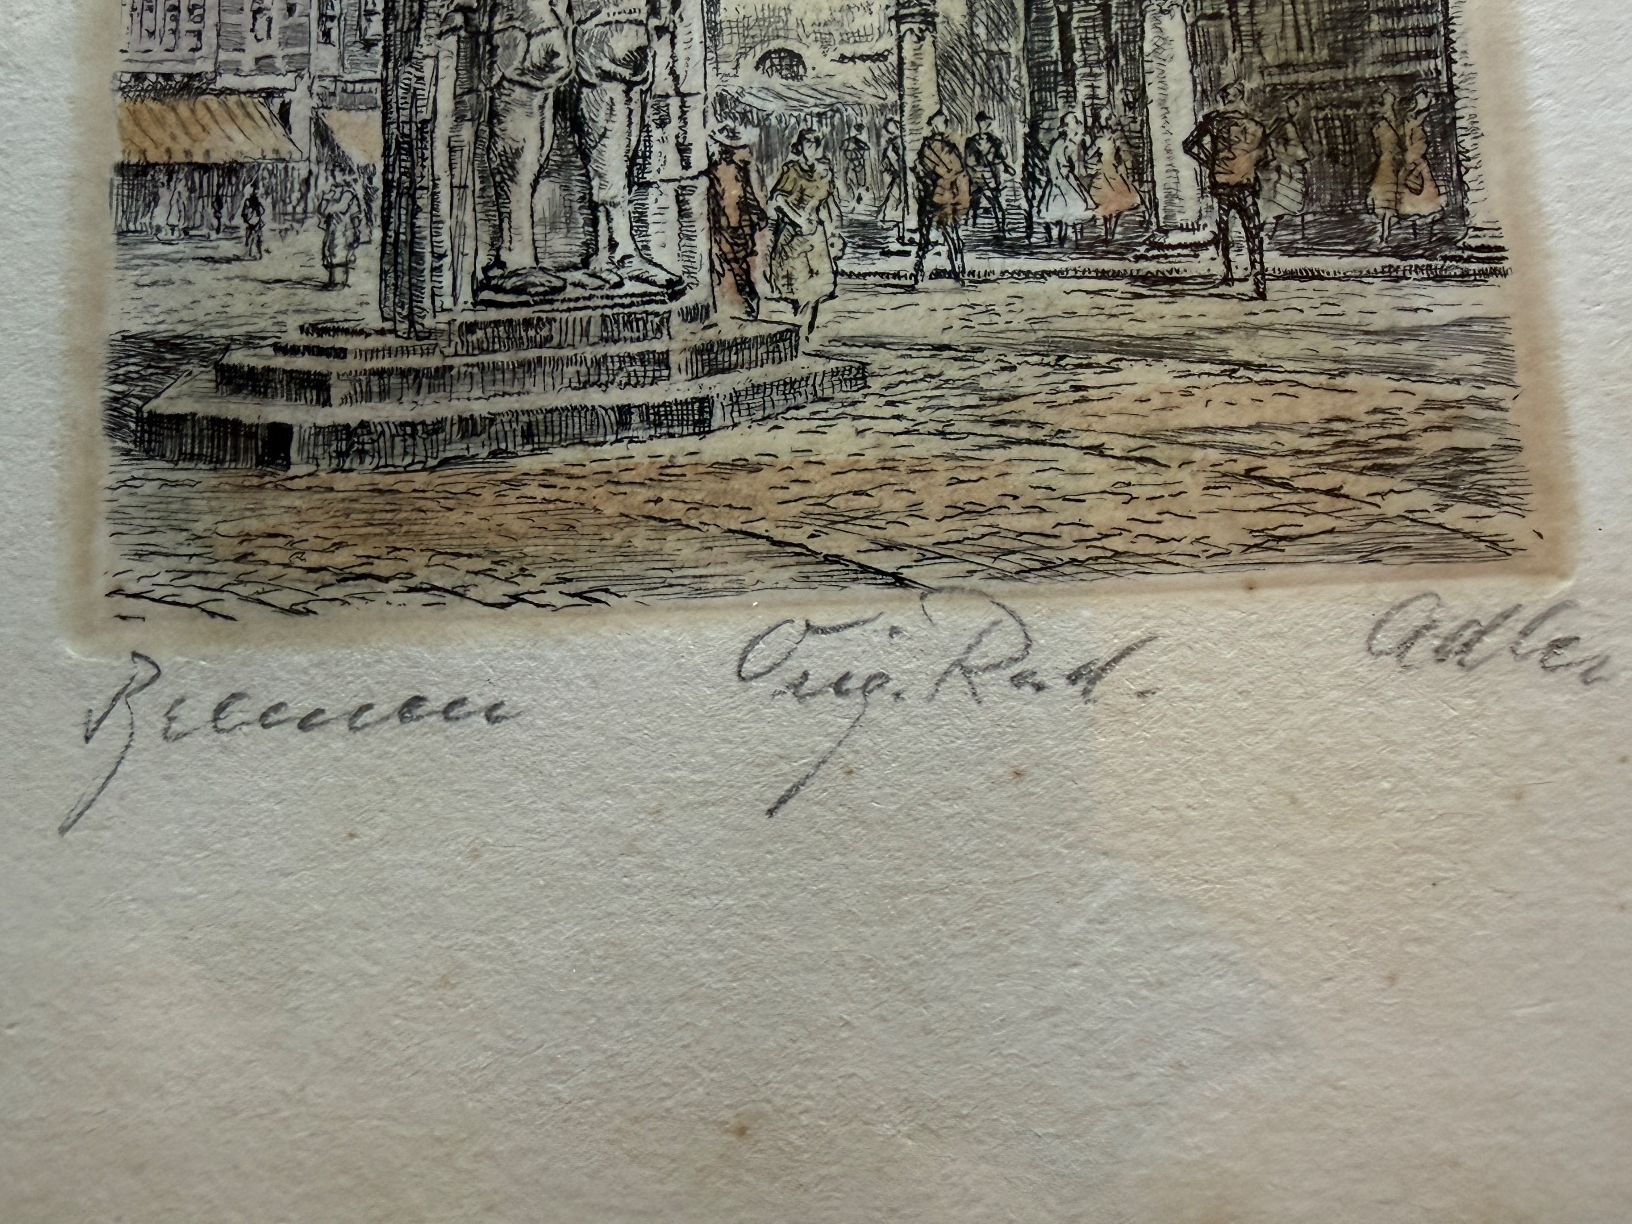 Bremen Orig. Rad. Adler